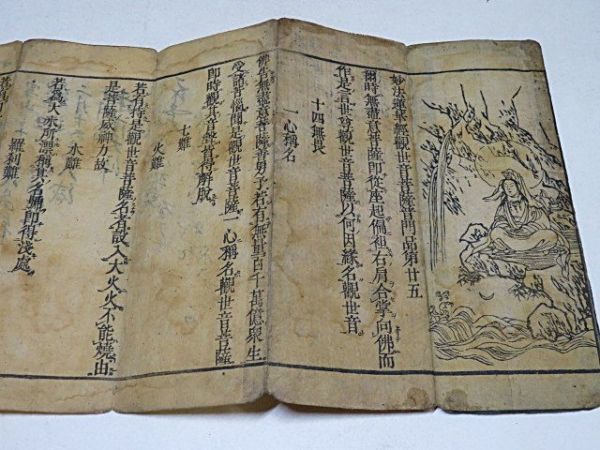 妙法蓮華經觀世音菩薩普門品第廿五
爾時無盡意菩薩即從座起偏袒右肩合掌向佛而
作是言世尊觀世音菩薩以何因緣名觀世音
十四無畏
一心稱名
佛告無盡意菩薩善男子若有無量百千萬億眾生
受諸苦惱聞是觀世音菩薩一心稱名觀世音菩薩
即時觀其音聲皆得解脫
七難
火難
若有持是觀世音菩薩名者設入大火火不能燒由
是菩薩威神力故
水難
若為大水所漂稱其名號即得淺處
羅刹難